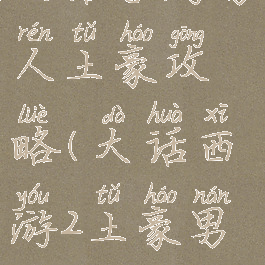 rén tǔ háo gōng
人土豪攻
lüè dà huà xī
略(大话西
yóu tǔ háo nán
游2土豪男